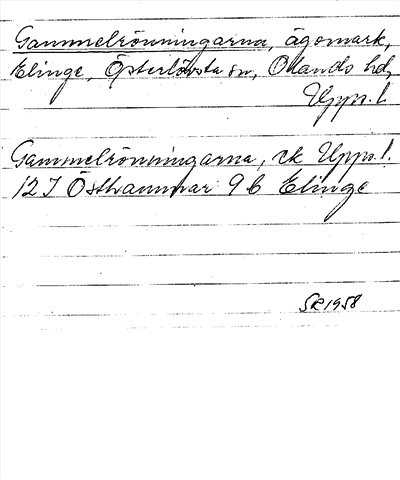 Gammelrönningarna, ägomark,
Elinge, Österlövsta sn, Olands hd,
Uppl.
Gammelrönningarna, ek Uppl.
12 I Östhammar 9 b Elinge
SR 1958